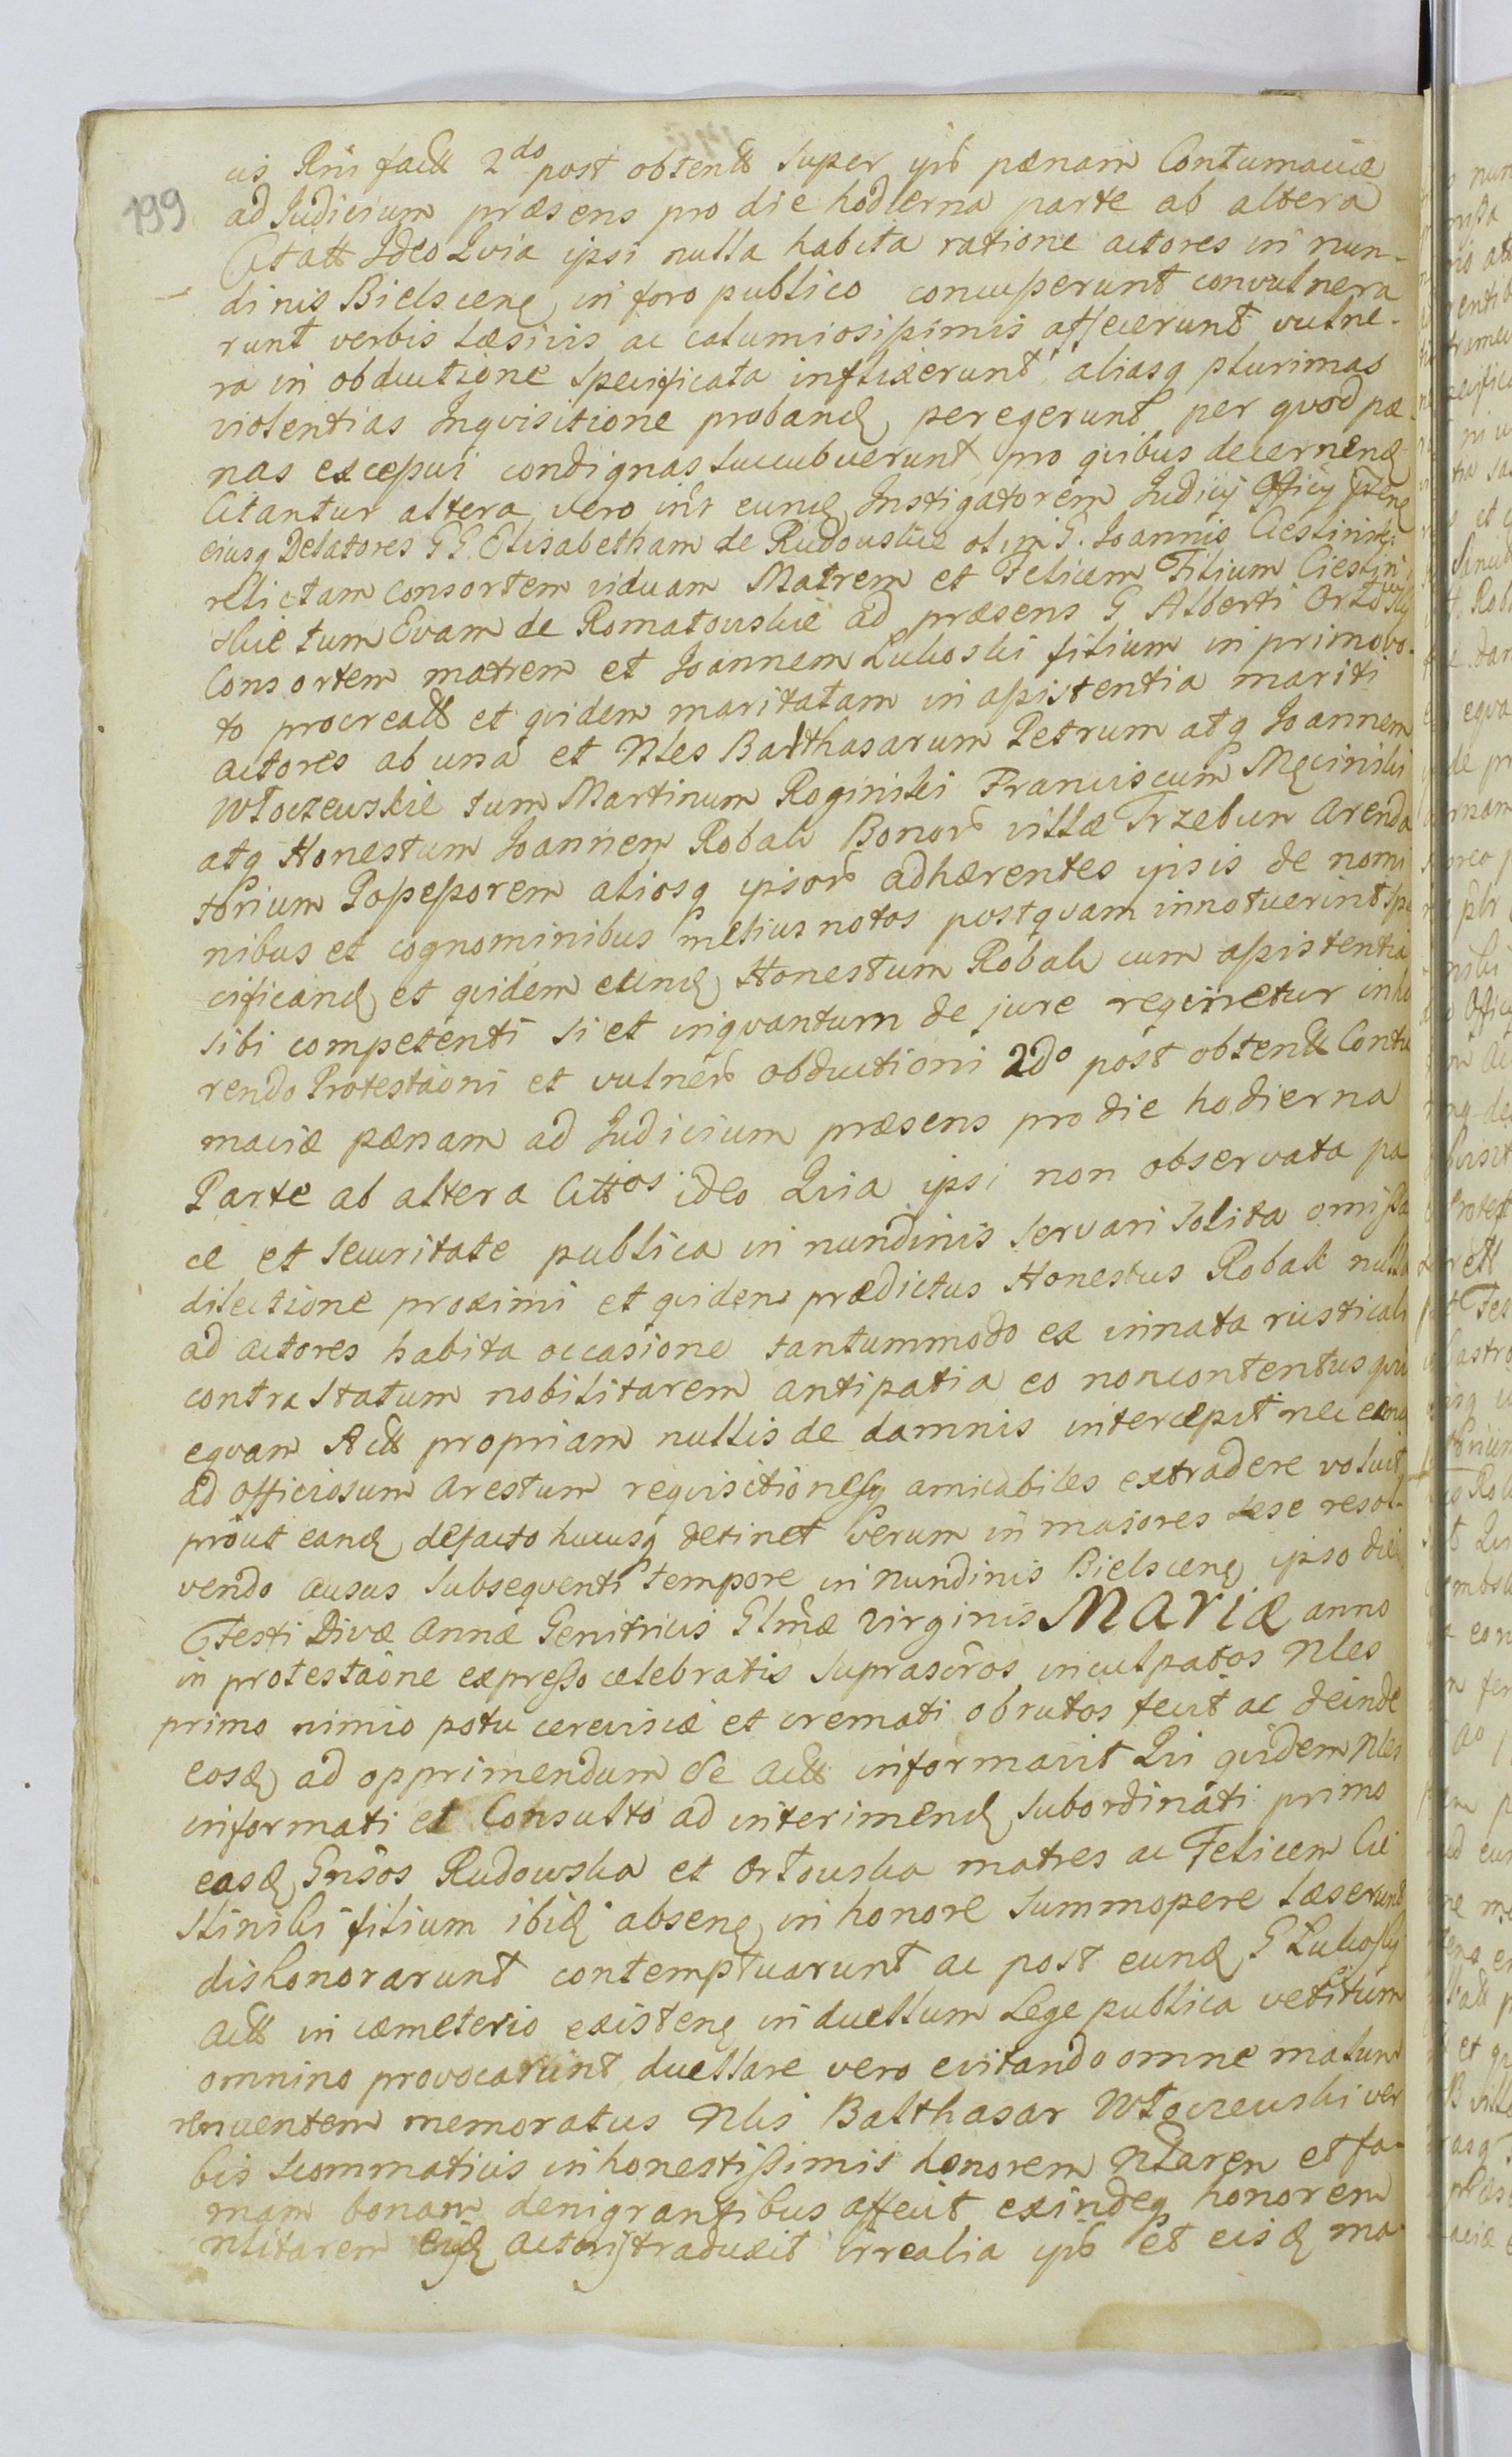 199
us Rnis fact 2do post obtent super ips pænam Contumaciæ
ad Judicium præsens pro die hodierna parte ab altera
Citatt Ideo Qvia ipsi nulla habita ratione actores in nun-
dinis Bielscens in foro publico concusserunt convulnera
runt verbis læsivis ac calumiosissimis affecerunt vulne-
ra in obductione specificata inflixerunt aliasq plurimas
violentias Inqvisitione proband peregerunt per qvod pæ
nas excessui condignas succubuerunt pro qvibus decernend
Citantur altera vero int eund Instigatorem Judicij Officij
eiusq Delatores GG Elisabetham de Rudouskie olim G. Joannis Ciesliński
relictam consortem viduam Matrem et Felicem Filium Cieslin
skie tum Evam de Romatouskie ad præsens G Alberti Ortowsky
Consortem matrem et Joannem Lukoski filium in primovo-
to procreatt et qvidem maritatam in assistentia mariti
actores ab una et Nles Balthasarum Petrum atq Joannem
Włoczewskie tum Martinum Roginski Franciscum Męcinski
atq Honestum Joannem Robak Bonor villæ Trzebun arenda
torium Possessorem aliosq ipsor adhærentes ipsis de nomi
nibus et cognominibus melius notos postqvam innotuerint spe
cificand et qvidem eund Honestum Robak cum assistentia
sibi competenti si et inqvantum de jure reqviretur inhæ
rendo Protestaoni et vulner obductioni 2do post obtent Contu
maciæ pænam ad Judicium præsens pro die hodierna
Parte ab altera Cittos ideo Qvia ipsi non observata pa
ce et securitate publica in nundinis servari solita omissa
dilectione proximi et qvidem prædictus Honestus Robak nulla
ad actores habita occasione tantummodo ex innata rusticali
contra Statum nobilitarem antipatia eo non contentus qvi
eqvam Act propriam nullis de damnis intercepit nec eand
ad officiosum arestum reqvisitionesq amicabiles extradere voluit
prout eand defacto hucusq detinet verum in majores sese resol-
vendo ausus subseqventi tempore in nundinis Bielscens ipso die
Festi Divæ Annæ Genitricis Glmæ virginis MARIÆ anno
in protestaone expresso celebratis suprascros inculpatos Nles
primo nimio potu cerevisiæ et cremati obrutos fecit ac deinde
eosd ad opprimendum de act informavit Qvi qvidem Nles
informati et Consulto ad interimend subordinati primo
easd Gnsos Rudowska et Ortouska matres ac Felicem Cie
slinski filium ibid absens in honore summopere læserunt
dishonorarunt contemptuarunt ac post eund G Lukosky
Act in cæmeterio existens in duellum Lege publica vetitum
omnino provocarunt duellare vero evitando omne malum
renuentem memoratus Nlis Balthasar Włoczewski ver
bis scommaticis inhonestissimis honorem Nlarem et fa-
mam bonam denigrantibus affecit exindeq honorem
nlitarem eiusd actoris traduxit irrealia ips et eisd ma-